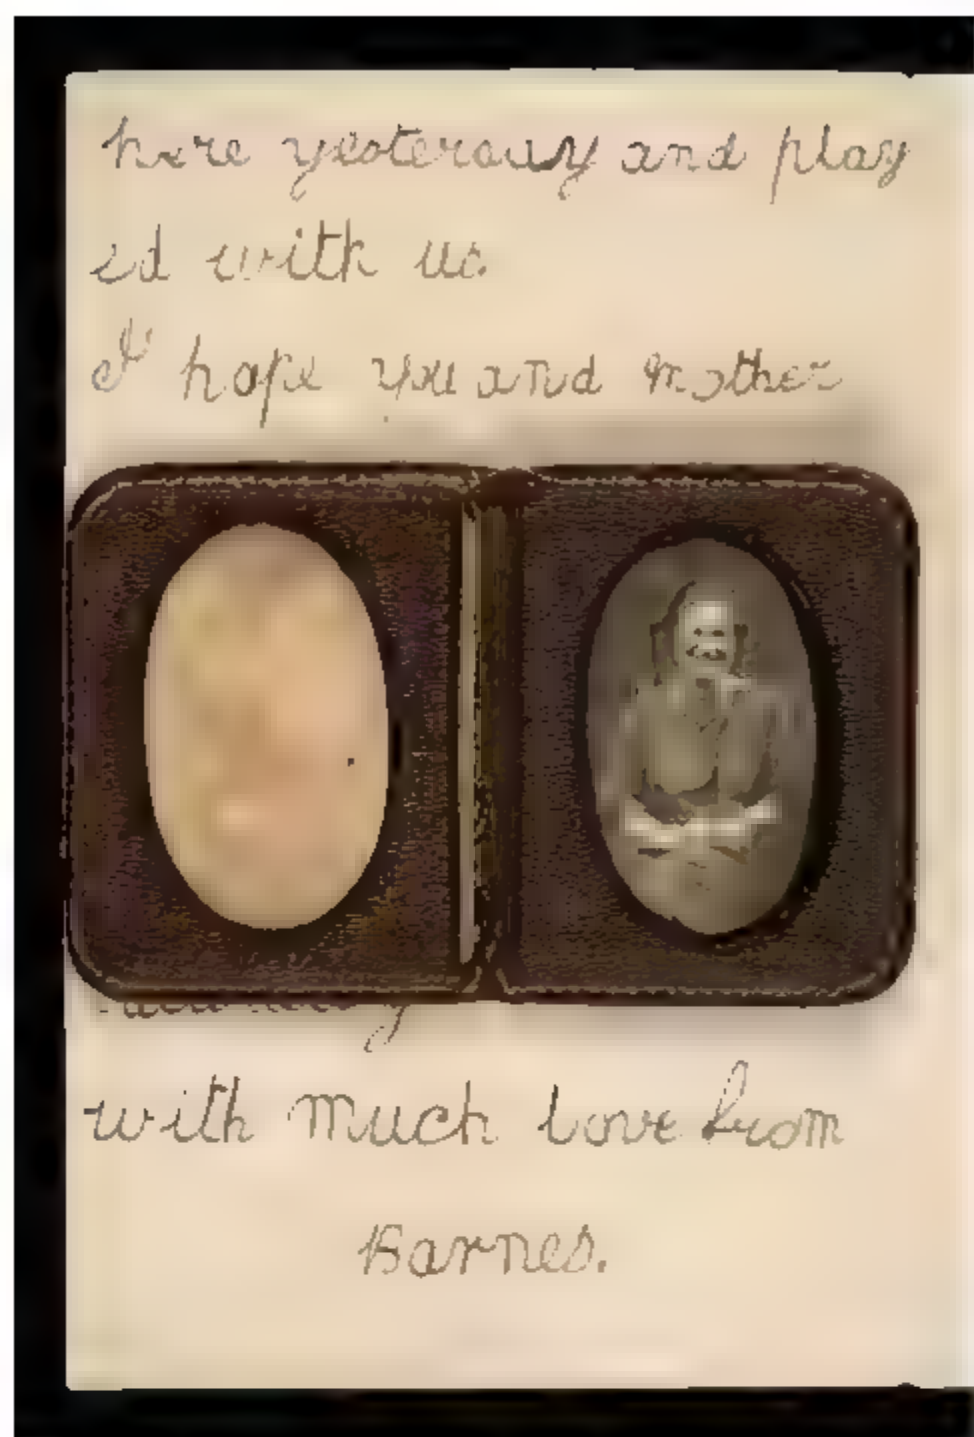 here yesterday and play
ed with us.
I hope you and Mother
with much love from
Barnes.